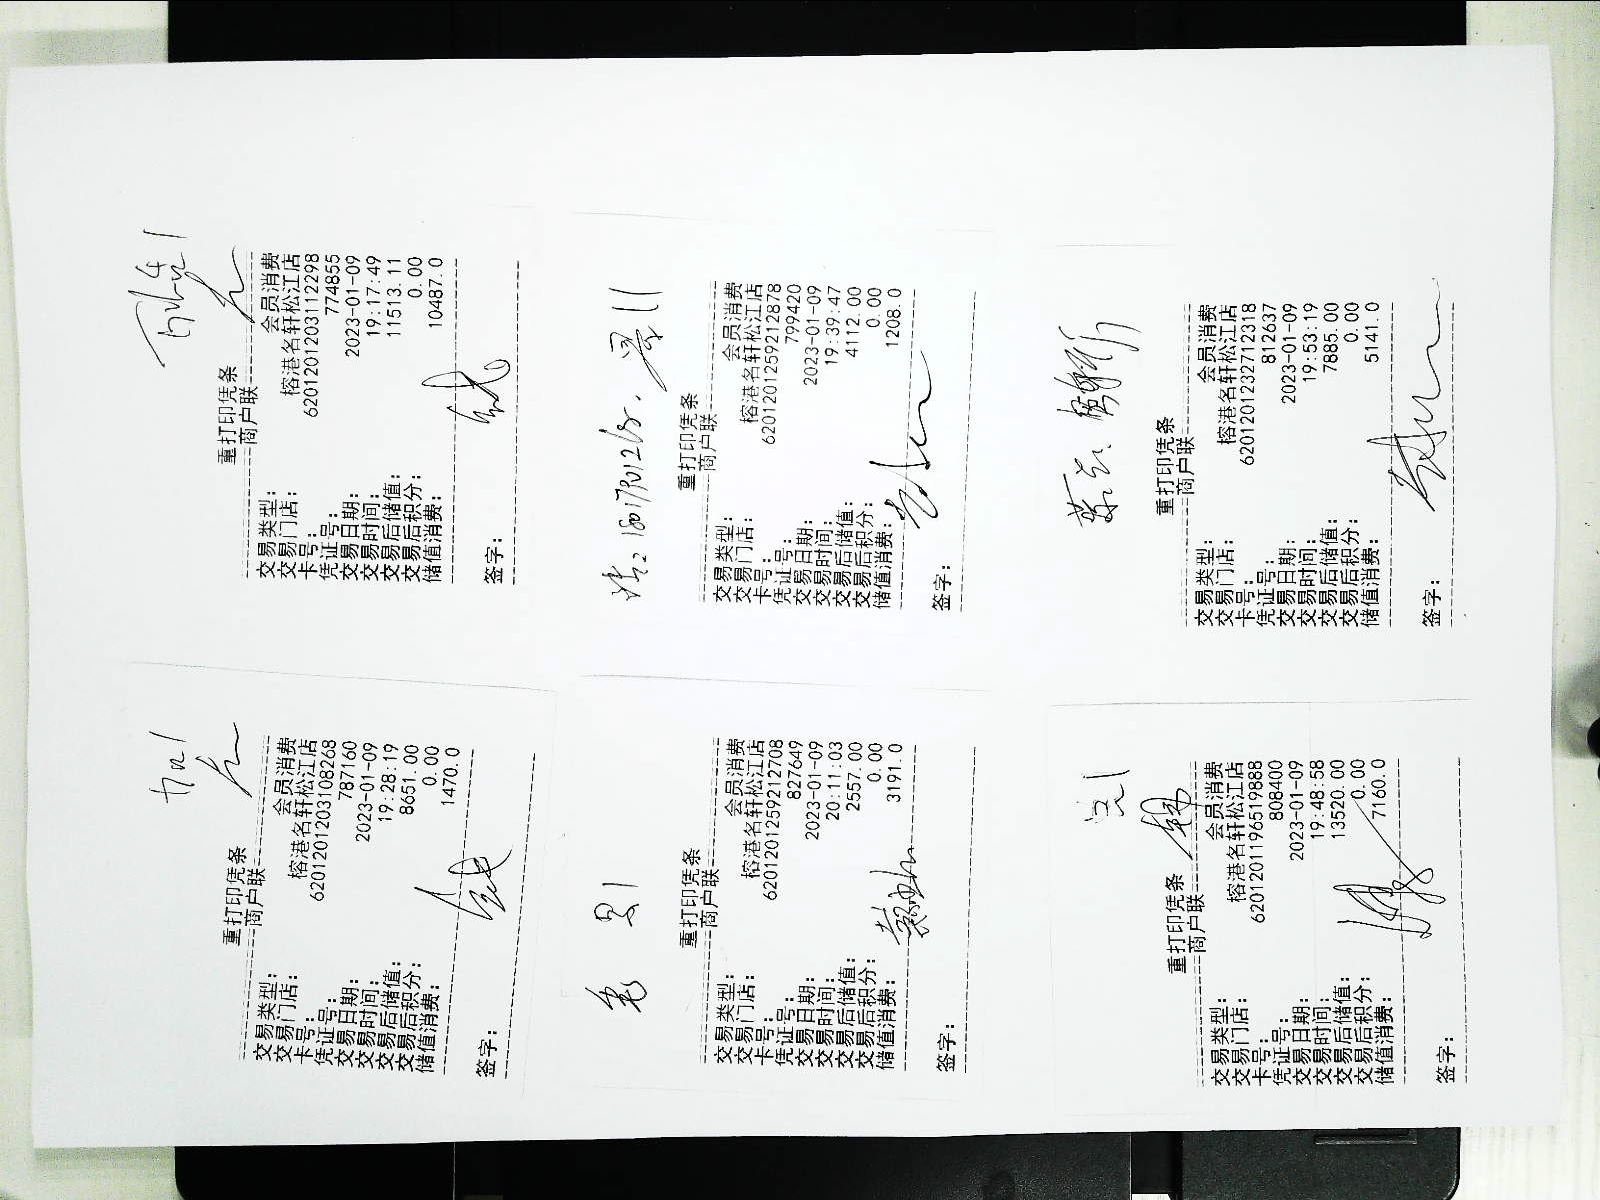 重打印凭条
商户联
交易类型: 会员消费
交易门店: 榕港名轩松江店
卡号: 6201201203108268
凭证号: 787160
交易日期: 2023-01-09
交易时间: 19:28:19
交易后储值: 8651.00
交易后积分: 0.00
储值消费: 1470.0
签字:
重打印凭条
商户联
交易类型: 会员消费
交易门店: 榕港名轩松江店
卡号: 6201201203112298
凭证号: 774855
交易日期: 2023-01-09
交易时间: 19:17:49
交易后储值: 11513.11
交易后积分: 0.00
储值消费: 10487.0
签字:
重打印凭条
商户联
交易类型: 会员消费
交易门店: 榕港名轩松江店
卡号: 6201201259212708
凭证号: 827649
交易日期: 2023-01-09
交易时间: 20:11:03
交易后储值: 2557.00
交易后积分: 0.00
储值消费: 3191.0
签字:
重打印凭条
商户联
交易类型: 会员消费
交易门店: 榕港名轩松江店
卡号: 6201201259212878
凭证号: 799420
交易日期: 2023-01-09
交易时间: 19:39:47
交易后储值: 4112.00
交易后积分: 0.00
储值消费: 1208.0
签字:
重打印凭条
商户联
交易类型: 会员消费
交易门店: 榕港名轩松江店
卡号: 6201201196519888
凭证号: 808400
交易日期: 2023-01-09
交易时间: 19:48:58
交易后储值: 13520.00
交易后积分: 0.00
储值消费: 7160.0
签字:
重打印凭条
商户联
交易类型: 会员消费
交易门店: 榕港名轩松江店
卡号: 6201201232712318
凭证号: 812637
交易日期: 2023-01-09
交易时间: 19:53:19
交易后储值: 7885.00
交易后积分: 0.00
储值消费: 5141.0
签字: